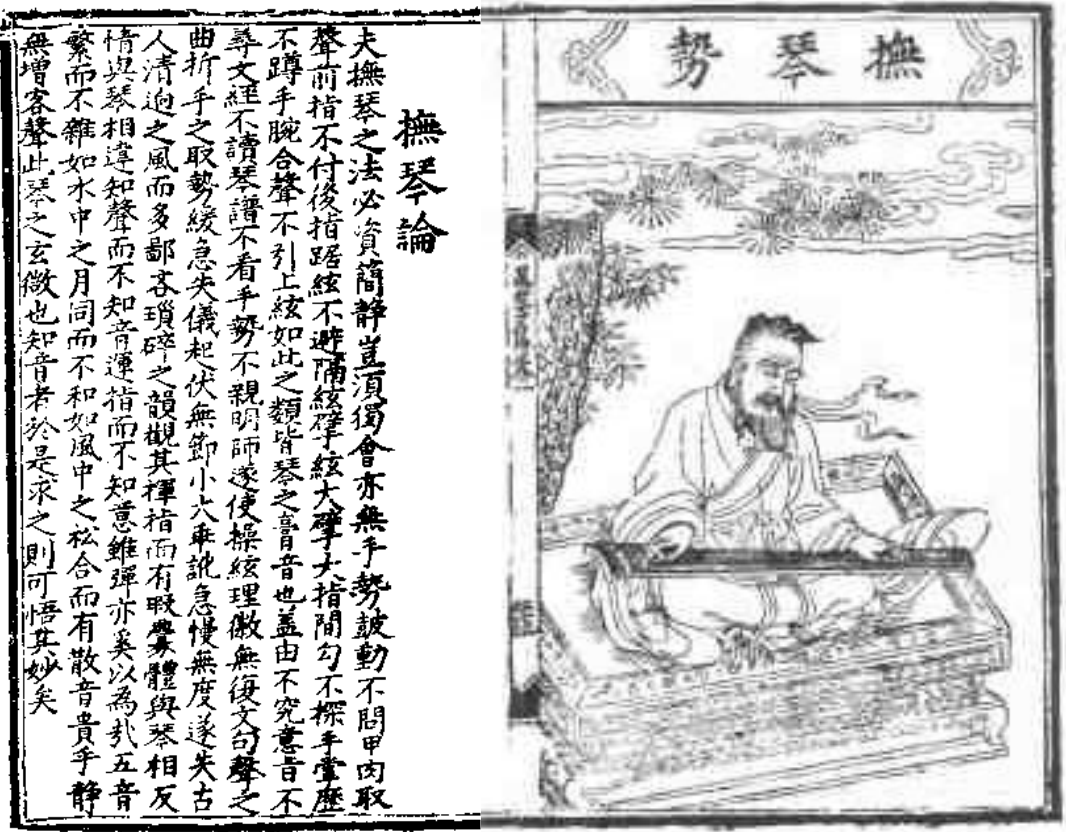 撫琴勢
撫琴論
夫撫琴之法必資簡静豈湏獨會亦無手勢皷動不問甲肉取
聲前指不付後指踞絃不避隔絃擘絃大擘大指間勾不探手掌歷
不蹲手腕合聲不引上絃如此之類皆琴之膏音也盖由不究意旨不
尋文經不讀琴譜不看手勢不親明師遂使操絃理徽無復文句聲之
曲折手之取勢緩急失儀起伏無節小大乖訛急慢無度遂失古
人清逈之風而多鄙吝瑣碎之韻觀其揮指而有暇舉體與琴相反
情與琴相違知聲而不知音運指而不知意雖彈亦奚以為㢤五音
繁而不雜如水中之月同而不和如風中之松合而有散音貴乎静
無增客聲此琴之玄微也知音者於是求之則可悟其妙矣